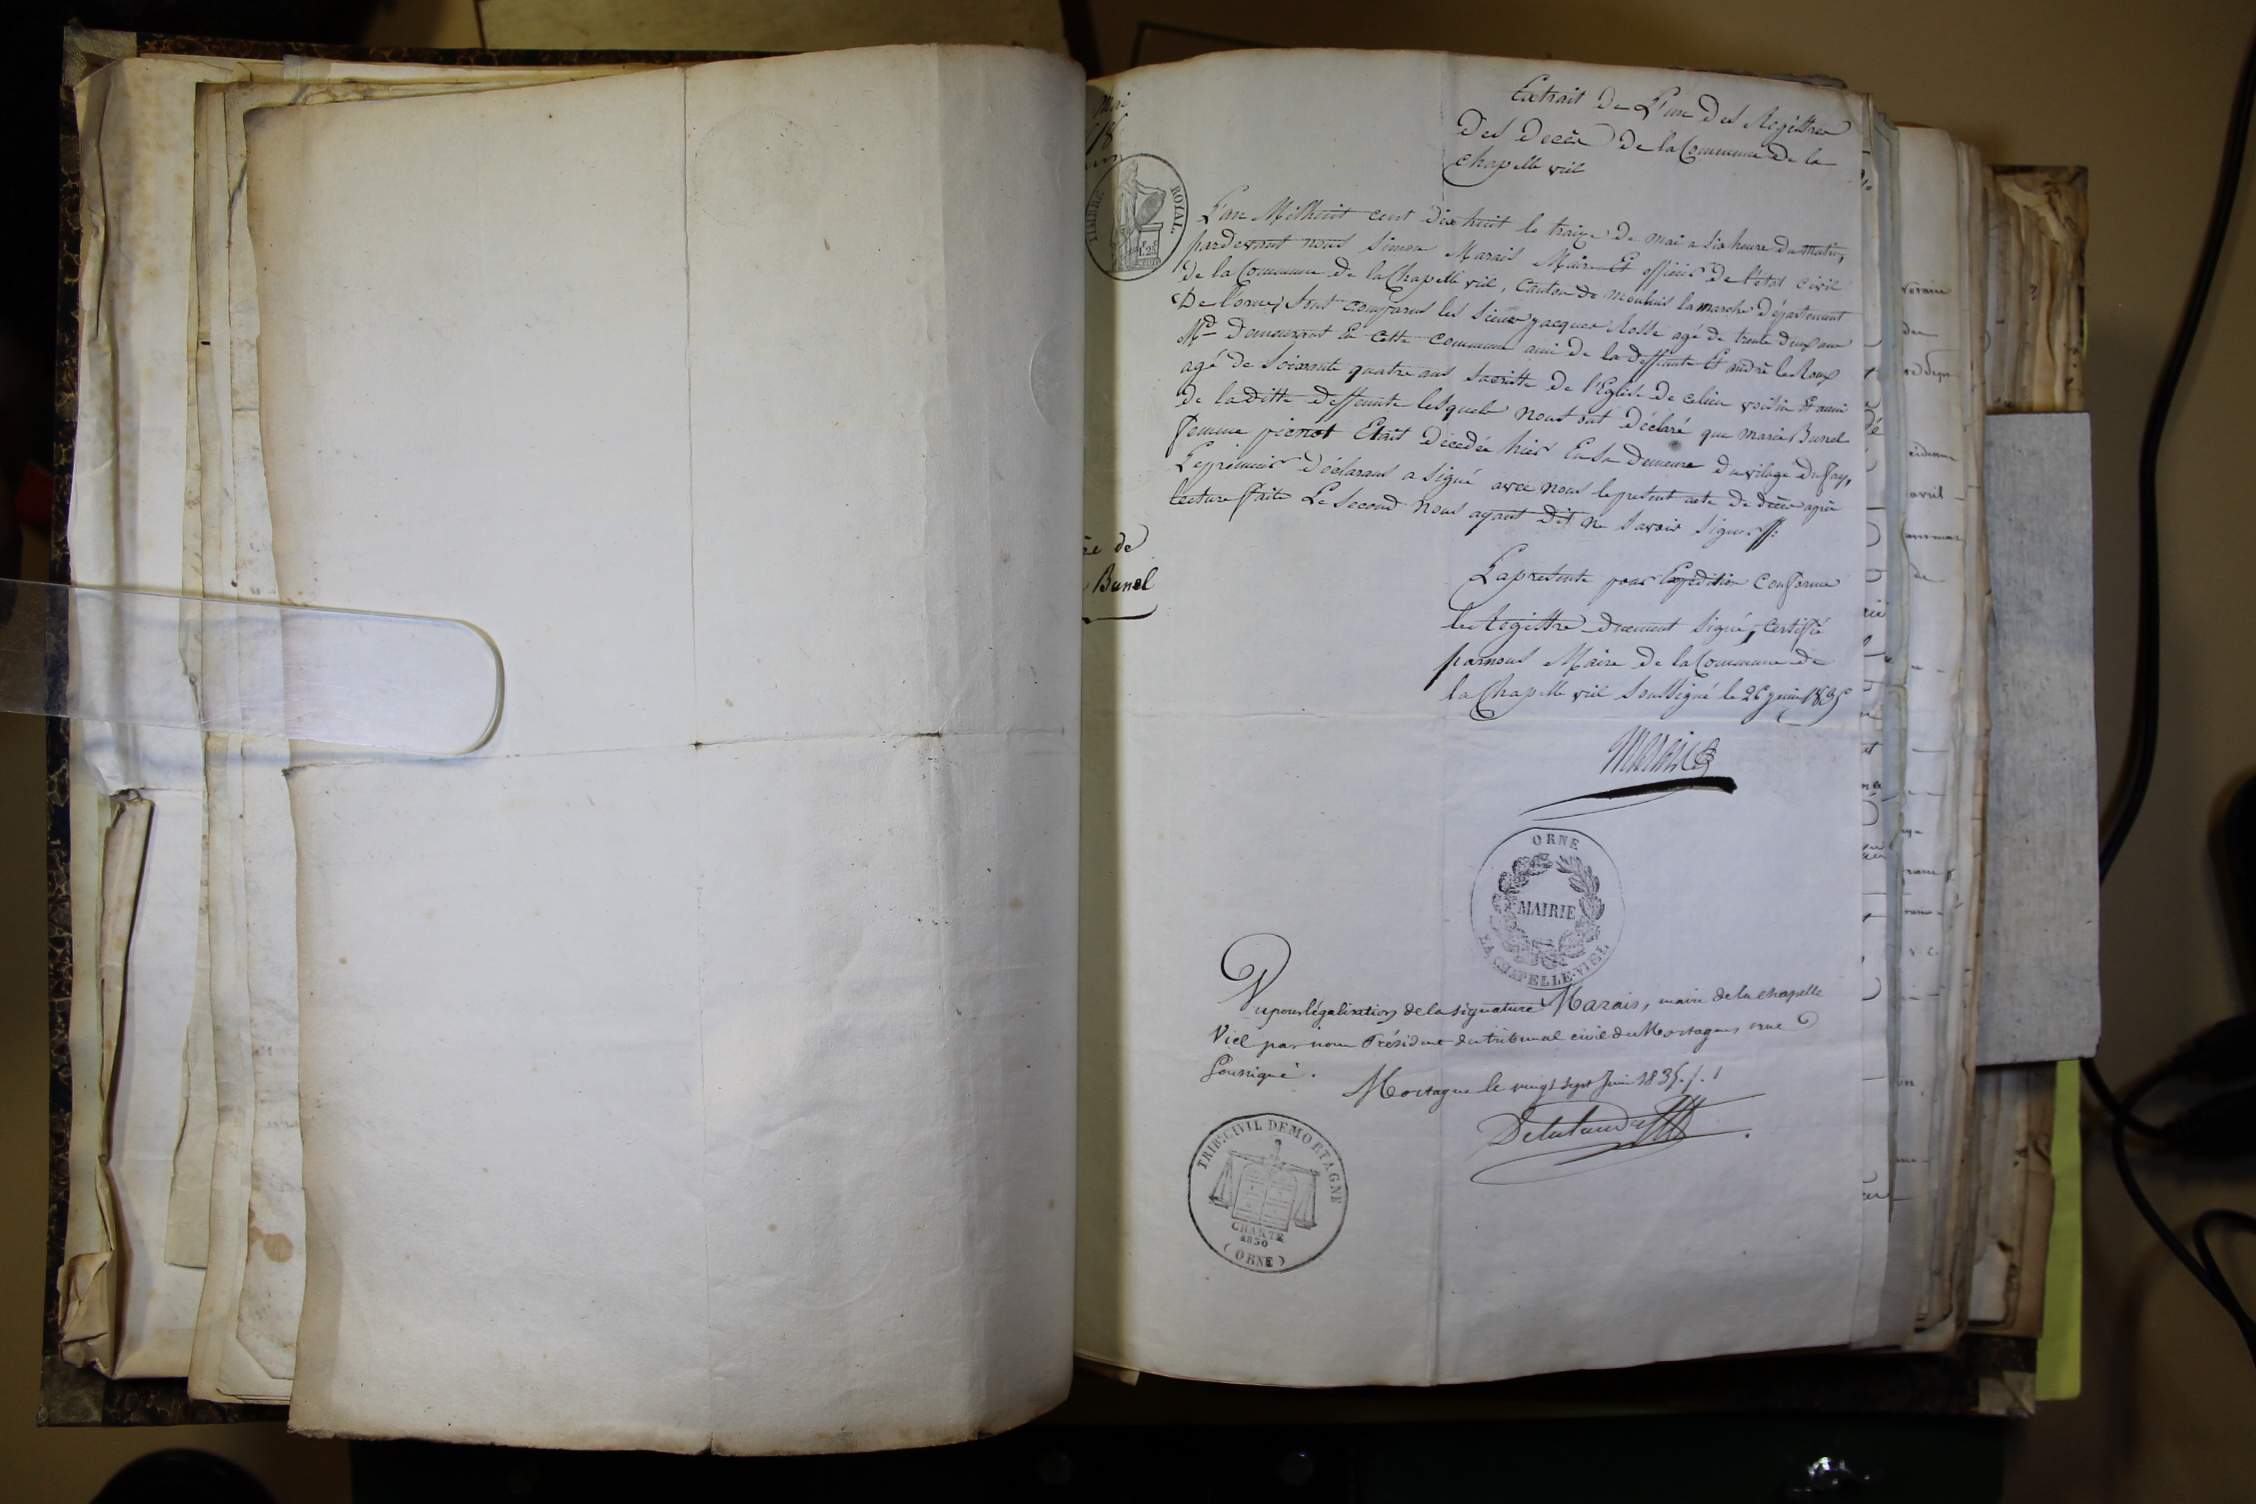 Mai
18
TIMBRE ROYAL
1.25
Extrait De L'un Des Registres
Des Decès De la Commune De la
chapelle viel
L'an Milhuit cent Dix huit le traize De mai a six heure du matin,
pardevant nous Simon Marais Maire Et officier De l'état civil
De la Commune De la Chapelle viel, Canton De moulins lamarche Département
De l'orne, Sont comparus les Sieurs jacques Rolle agé de trente deux ans
Md Demeurant En Cette commune ami De la deffunte Et andré le Roux
agé De Soixante quatre ans Sacriste De l'Eglise De celieu voisin Et ami
De laditte Deffunte lesquels Nous ont Déclaré que marie Bunel
femme Etait Décedée hier En Sa Demeure du vilage Du fay,
Le premier Déclarans a Signé avec nous le present acte De décès après
lecture faite Le Second Nous ayant Dit ne Savoir Signer
de
Bunel
La presente pour Expédition Conforme
le Registre Duement Signé, Certifié
parnous Maire De la Commune De
la Chapelle viel Soussigné le 26 juin 1835
Marais
ORNE
MAIRIE
LA CHAPELLE-VIEL
Vu pour légalisation de la signature Marais, maire de la chapelle
Viel par nous Président du tribunal civil de Mortagne orne
Soussigné.
Mortagne le vingt sept Juin 1835./.
Delalande
TRIB. CIVIL DE MORTAGNE
CHARTE
1830
(ORNE)